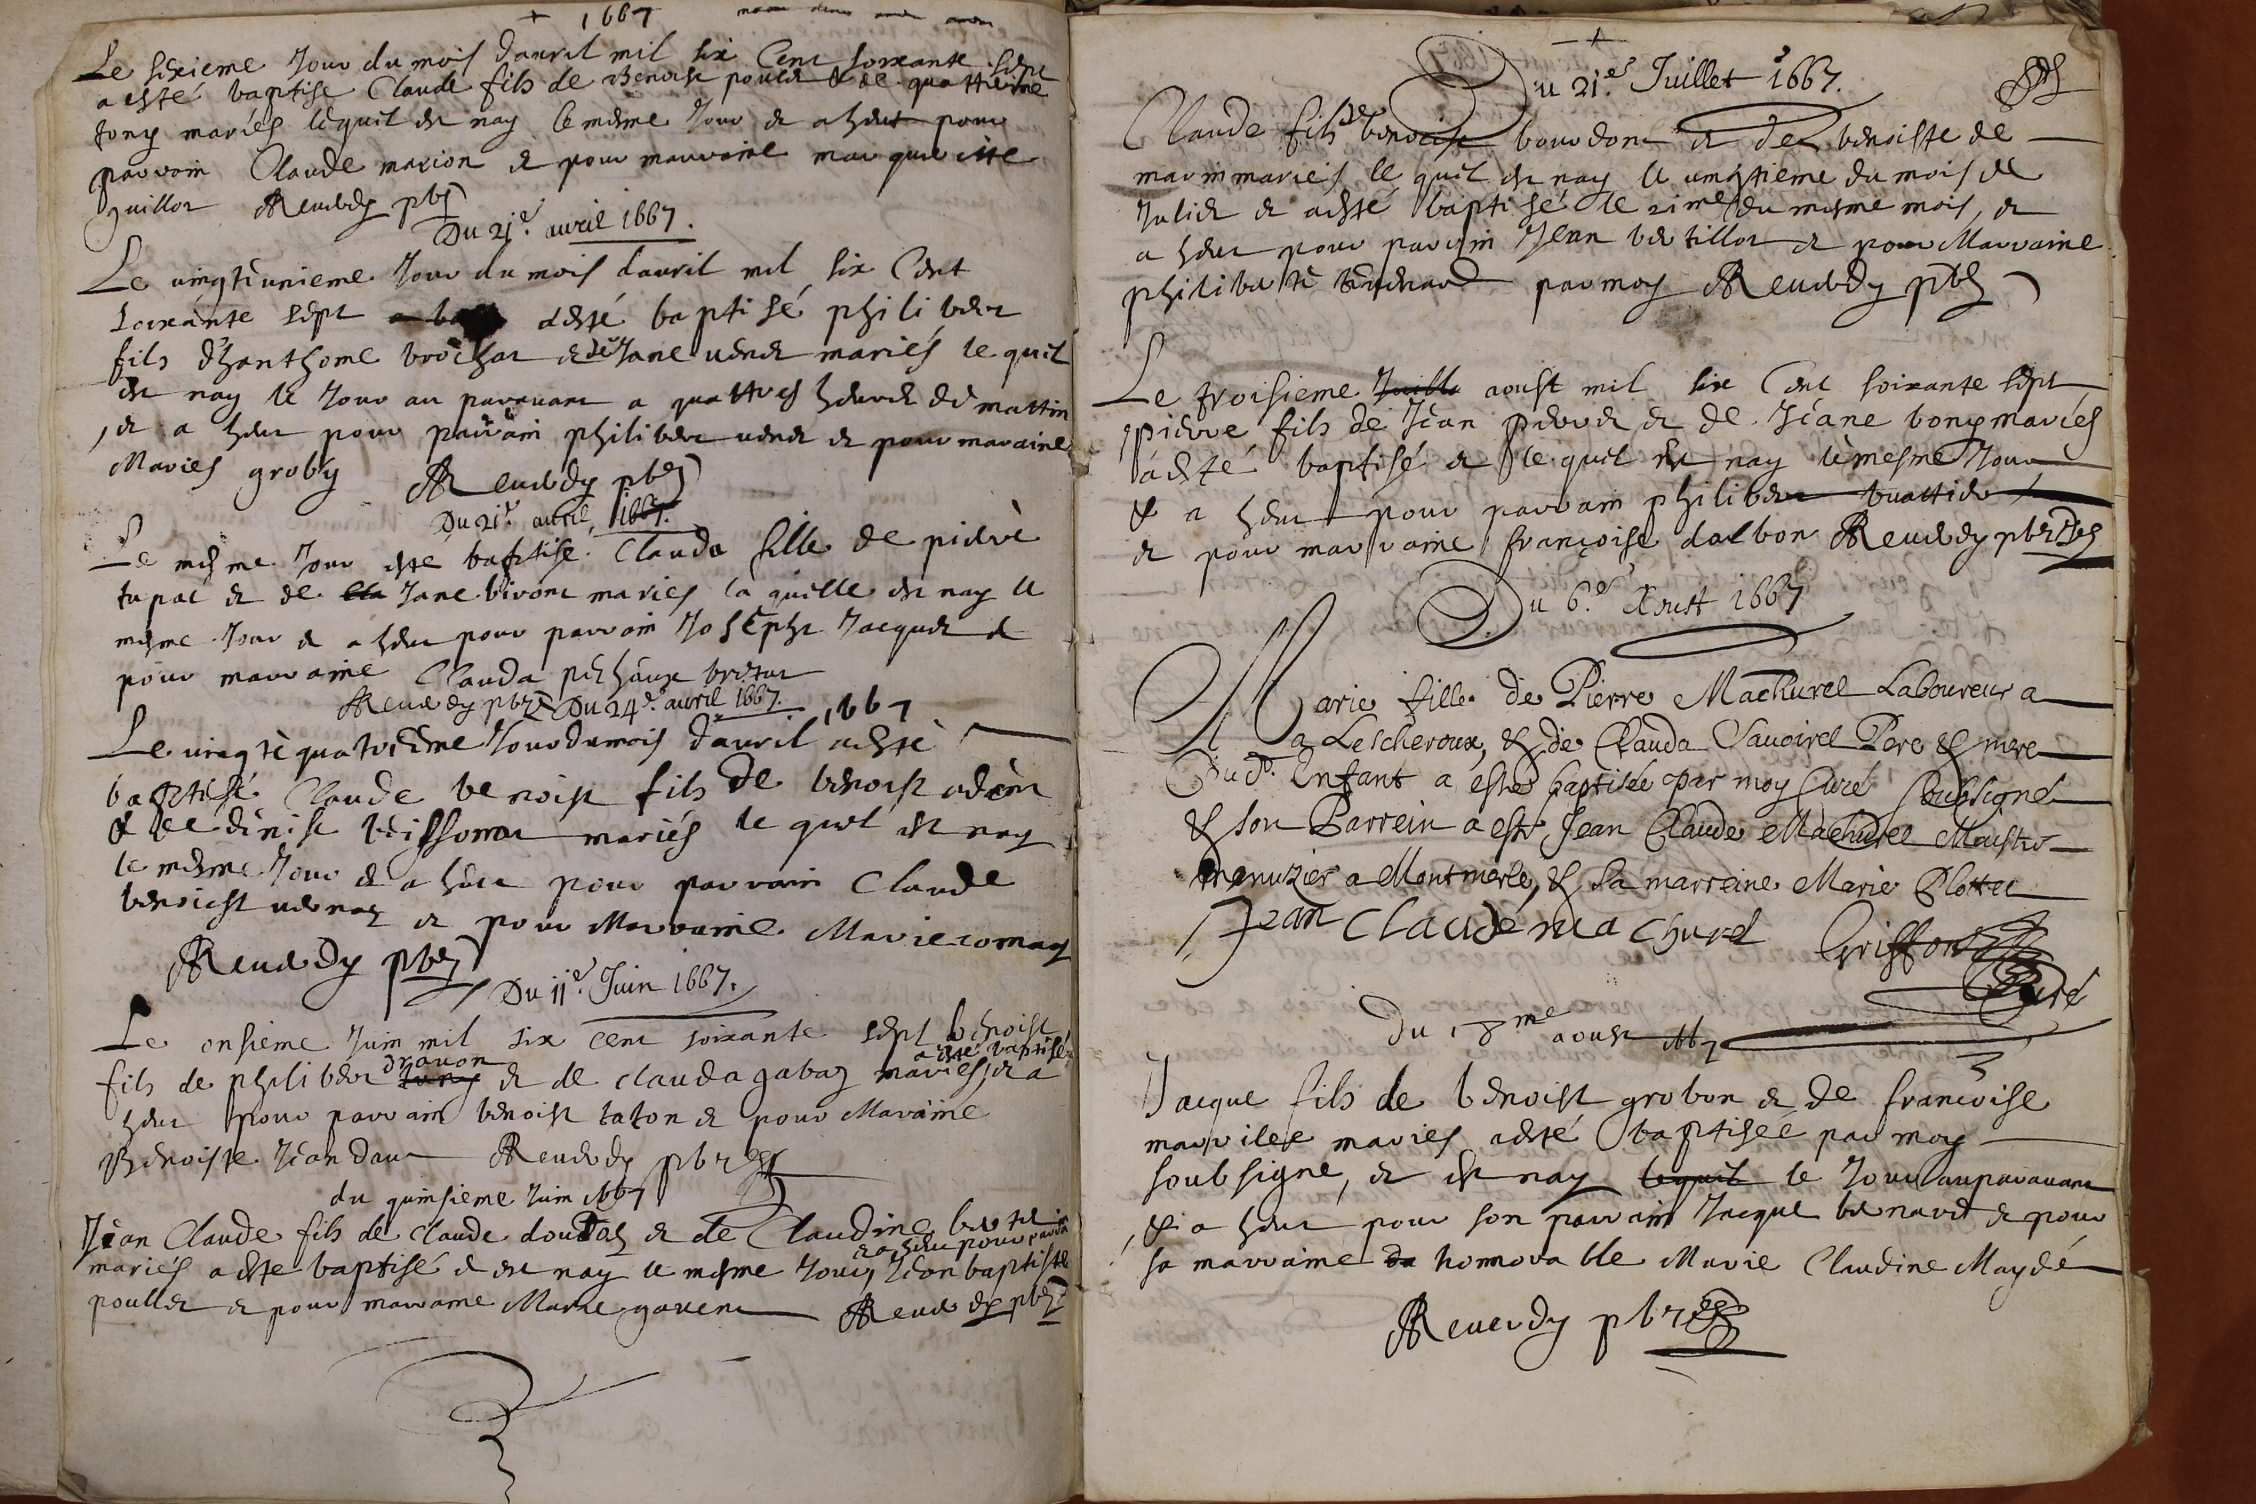 + 1667
Le sixieme Jour du mois dauril mil six Cent soixante sept
a esté baptise Claude fils de Benoist poulet & de
tony mariés lequil est nay le mesme Jour et a heut pour
parroin Claude marion et pour marraine margueritte
guillot Reuerdy pbr
Du 21e auril 1667.
Le uingtèunieme Jour du mois dauril mil six Cent
soixante sept aesté baptisé philibert
fils d'hanthome brochat et de Jane uenet mariés le quil
est nay le Jour au parauant a quattres heures de mattin
, et a heut pour parrain philibert uenet et pour maraine
Maries groby Reuerdy pbr
Du 21e auril 1667.
Le mesme Jour este baptise Clauda fille de pierre
tupat et de Jane biront maries la quille est nay le
mesme Jour et a heut pour parroin Joseph Jacquet et
pour marraine Clauda
Reuerdy pbr Du 24e auril 1667. 1667
Le uingtè quatrieme Jour du mois dauril aesté
baptisé Claude benoist fils de benoist adam
& de denise mariés le quil est nay
le mesme Jour et a heut pour parroin Claude
benoist uernay et pour Marraine Marie
Reuerdy pbr
Du 11e Juin 1667.
Le onsieme Juin mil six cent soixante sept benoist
drouon aesté baptisé
fils de philibert tony et de clauda gabaz maries, et a
heut pour parrain benoist taton et pour Maraine
Benoiste Jeandau Reuerdy pbr
du quinsieme Juin 1667
Jean Claude fils de Claude doudas et de Claudine
et a heu pour parrain
mariés aeste baptisé et est nay le mesme Jour, Jean baptiste
poullet et pour marraine Marie gauent Reuerdy pbr
+
Du 21e Juillet 1667.
Claude fils de benoist bourdont et de benoiste de
marin mariés le quil est nay le uingtieme du mois de
Juliet et aesté baptisé le 21me du mesme mois, et
a heut pour parrain Jean bertillot et pour Marraine
philiberte par moy Reuerdy pbr
Le troisieme Juille aoust mil six Cent soixante sept
pierre fils de Jean pierret et de Jeane bony mariés
aesté baptisé et le quil est nay le mesme Jour
& a heut pour parrain philibert buattier
et pour marraine francoise dalbon Reuerdy pbr
Du 6e Aoust 1667
Marie fille de Pierre Machurel Laboureur a
a Lescheroux, & de Clauda Sauoirel Pere & mere
Du dt Enfant a esté baptisée par moy Curé soubsigné
& son Parrein a esté Jean Claude Machurel Maistre
menuzier a Montmerle, & sa marreine Marie Plottet
Jean Claude ma churel Griffon
Curé
Du 18me aoust 1667
Jacque fils de benoist grobon et de francoise
maruilee maries aesté baptiseé par moy
soubsigne, et est nay lequil le Jour auparauant
, & a heut pour son parrain Jacque benard et pour
sa marraine da honnorable Marie Claudine Maydé
Reuerdy pbr